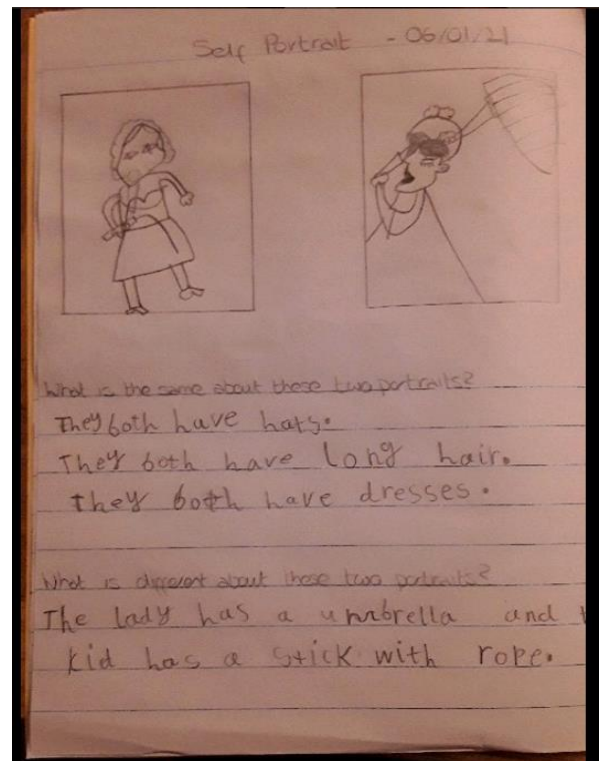 Self Portrait - 06/01/21
What is the same about these two portraits?
They both have hats.
They both have long hair.
They both have dresses.
What is different about these two portraits?
The lady has a umbrella and
kid has a stick with rope.